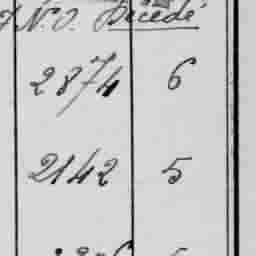 N.O. Décédé
2874 6
2142 5